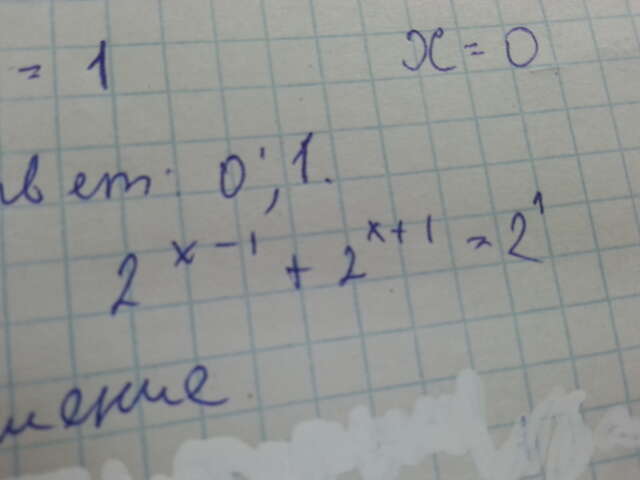 = 1 x = 0
вет: 0; 1.
2^{x-1} + 2^{x+1} = 2^1